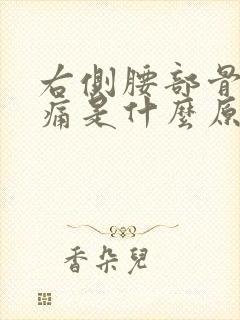 右側腰部骨
痛是什麼原
香朵兒